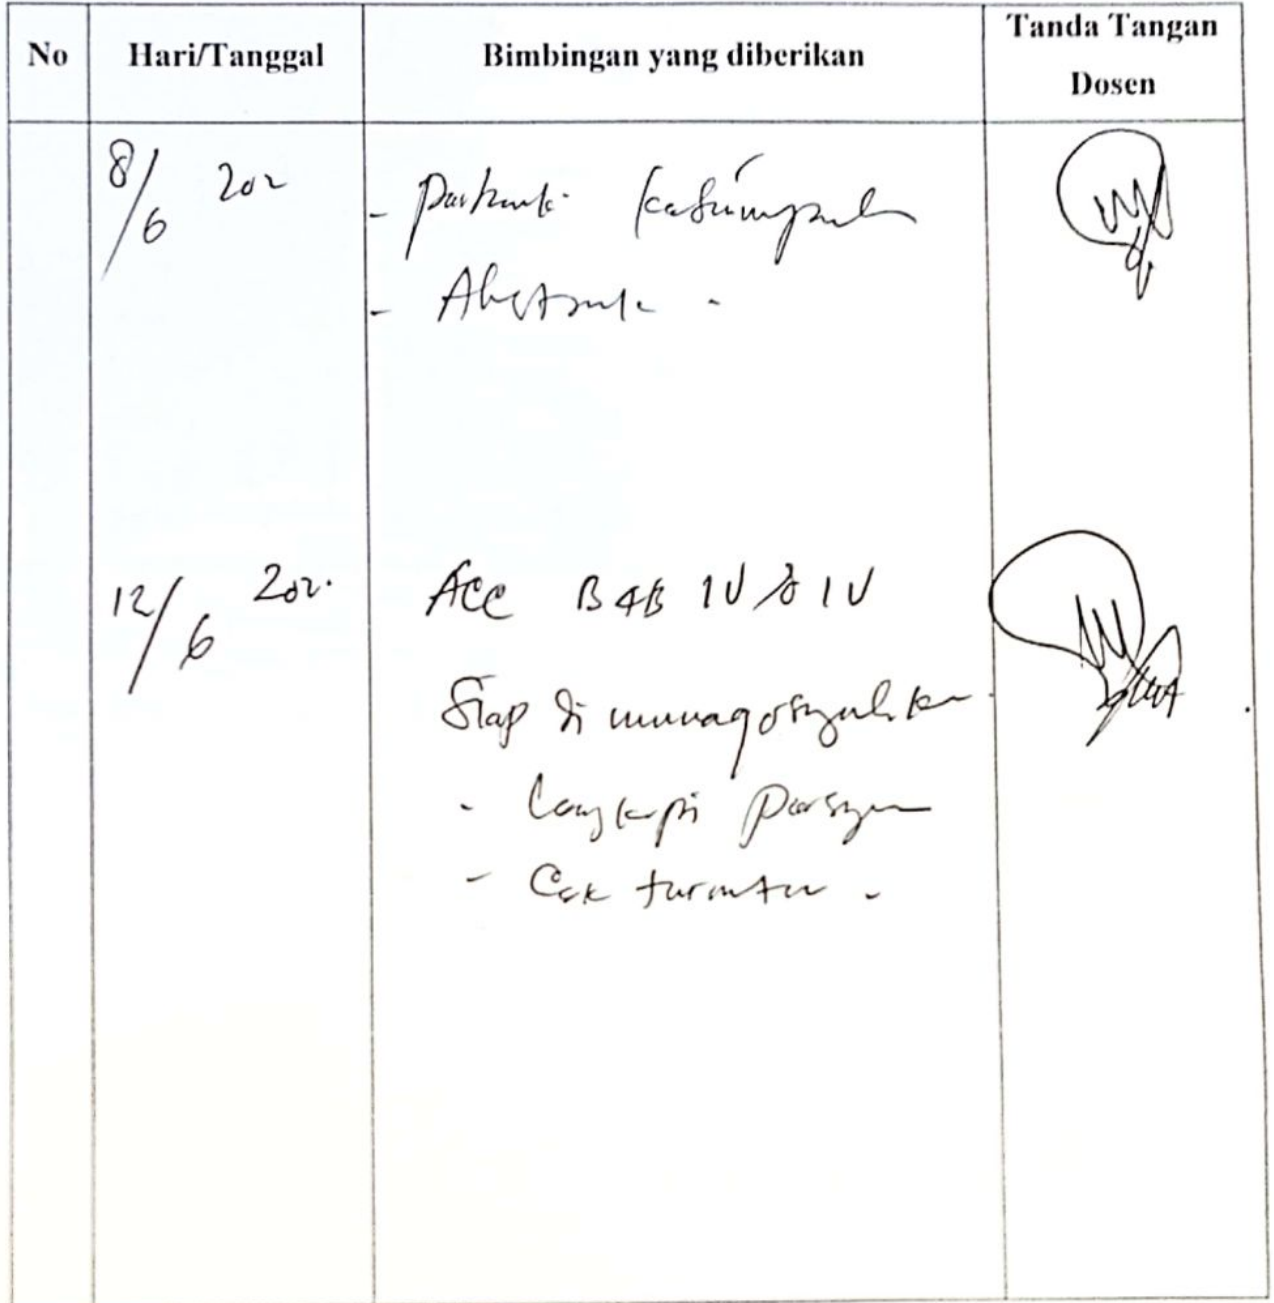 No Hari/Tanggal Bimbingan yang diberikan Tanda Tangan Dosen
8/6 202
- Perbaiki kesimpulan
- Abstrak -
12/6 202.
ACC BAB IV & IV
Siap di munaqosyahkan
- Lengkapi
- Cek turnitin -